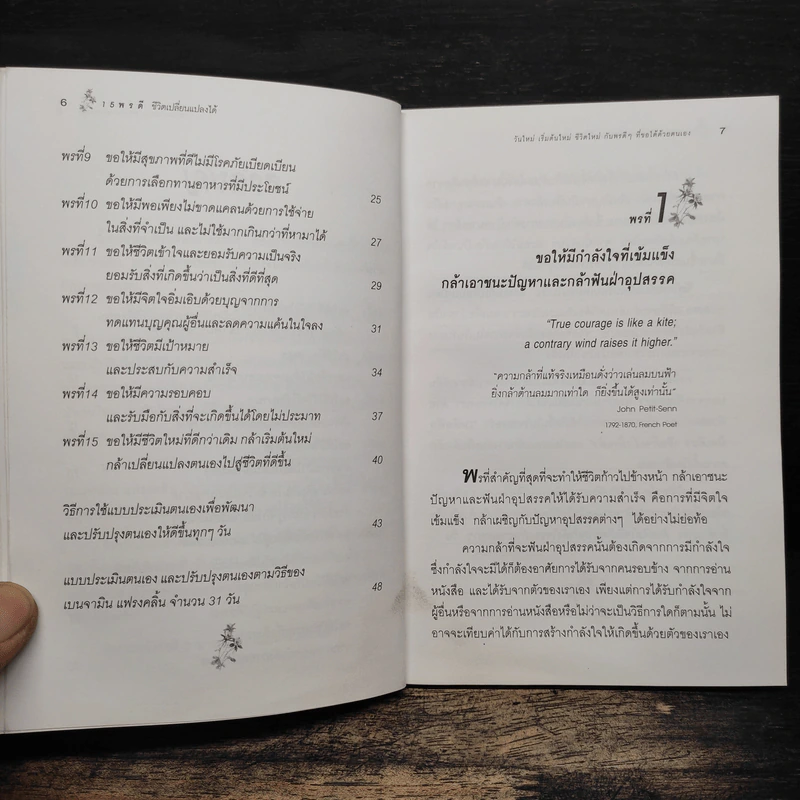 6 15พรดี ชีวิตเปลี่ยนแปลงได้
พรที่9 ขอให้มีสุขภาพที่ดีไม่มีโรคภัยเบียดเบียน
ด้วยการเลือกทานอาหารที่มีประโยชน์ 25
พรที่10 ขอให้มีพอเพียงไม่ขาดแคลนด้วยการใช้จ่าย
ในสิ่งที่จำเป็น และไม่ใช้มากเกินกว่าที่หามาได้ 27
พรที่11 ขอให้ชีวิตเข้าใจและยอมรับความเป็นจริง
ยอมรับสิ่งที่เกิดขึ้นว่าเป็นสิ่งที่ดีที่สุด 29
พรที่12 ขอให้มีจิตใจอิ่มเอิบด้วยบุญจากการ
ทดแทนบุญคุณผู้อื่นและลดความแค้นในใจลง 31
พรที่13 ขอให้ชีวิตมีเป้าหมาย
และประสบกับความสำเร็จ 34
พรที่14 ขอให้มีความรอบคอบ
และรับมือกับสิ่งที่จะเกิดขึ้นได้โดยไม่ประมาท 37
พรที่15 ขอให้มีชีวิตใหม่ที่ดีกว่าเดิม กล้าเริ่มต้นใหม่
กล้าเปลี่ยนแปลงตนเองไปสู่ชีวิตที่ดีขึ้น 40
วิธีการใช้แบบประเมินตนเองเพื่อพัฒนา
และปรับปรุงตนเองให้ดีขึ้นทุกๆ วัน 43
แบบประเมินตนเอง และปรับปรุงตนเองตามวิธีของ
เบนจามิน แฟรงคลิ้น จำนวน 31 วัน 48
วันใหม่ เริ่มต้นใหม่ ชีวิตใหม่ กับพรดีๆ ที่ขอได้ด้วยตนเอง 7
พรที่ 1
ขอให้มีกำลังใจที่เข้มแข็ง
กล้าเอาชนะปัญหาและกล้าฟันฝ่าอุปสรรค
"True courage is like a kite;
a contrary wind raises it higher."
"ความกล้าที่แท้จริงเหมือนดั่งว่าวเล่นลมบนฟ้า
ยิ่งกล้าต้านลมมากเท่าใด ก็ยิ่งขึ้นได้สูงเท่านั้น"
John Petit-Senn
1792-1870, French Poet
พรที่สำคัญที่สุดที่จะทำให้ชีวิตก้าวไปข้างหน้า กล้าเอาชนะ
ปัญหาและฟันฝ่าอุปสรรคให้ได้รับความสำเร็จ คือการที่มีจิตใจ
เข้มแข็ง กล้าเผชิญกับปัญหาอุปสรรคต่างๆ ได้อย่างไม่ย่อท้อ
ความกล้าที่จะฟันฝ่าอุปสรรคนั้นต้องเกิดจากการมีกำลังใจ
ซึ่งกำลังใจจะมีได้ก็ต้องอาศัยการได้รับจากคนรอบข้าง จากการอ่าน
หนังสือ และได้รับจากตัวของเราเอง เพียงแต่การได้รับกำลังใจจาก
ผู้อื่นหรือจากการอ่านหนังสือหรือไม่ว่าจะเป็นวิธีการใดก็ตามนั้น ไม่
อาจจะเทียบค่าได้กับการสร้างกำลังใจให้เกิดขึ้นด้วยตัวของเราเอง